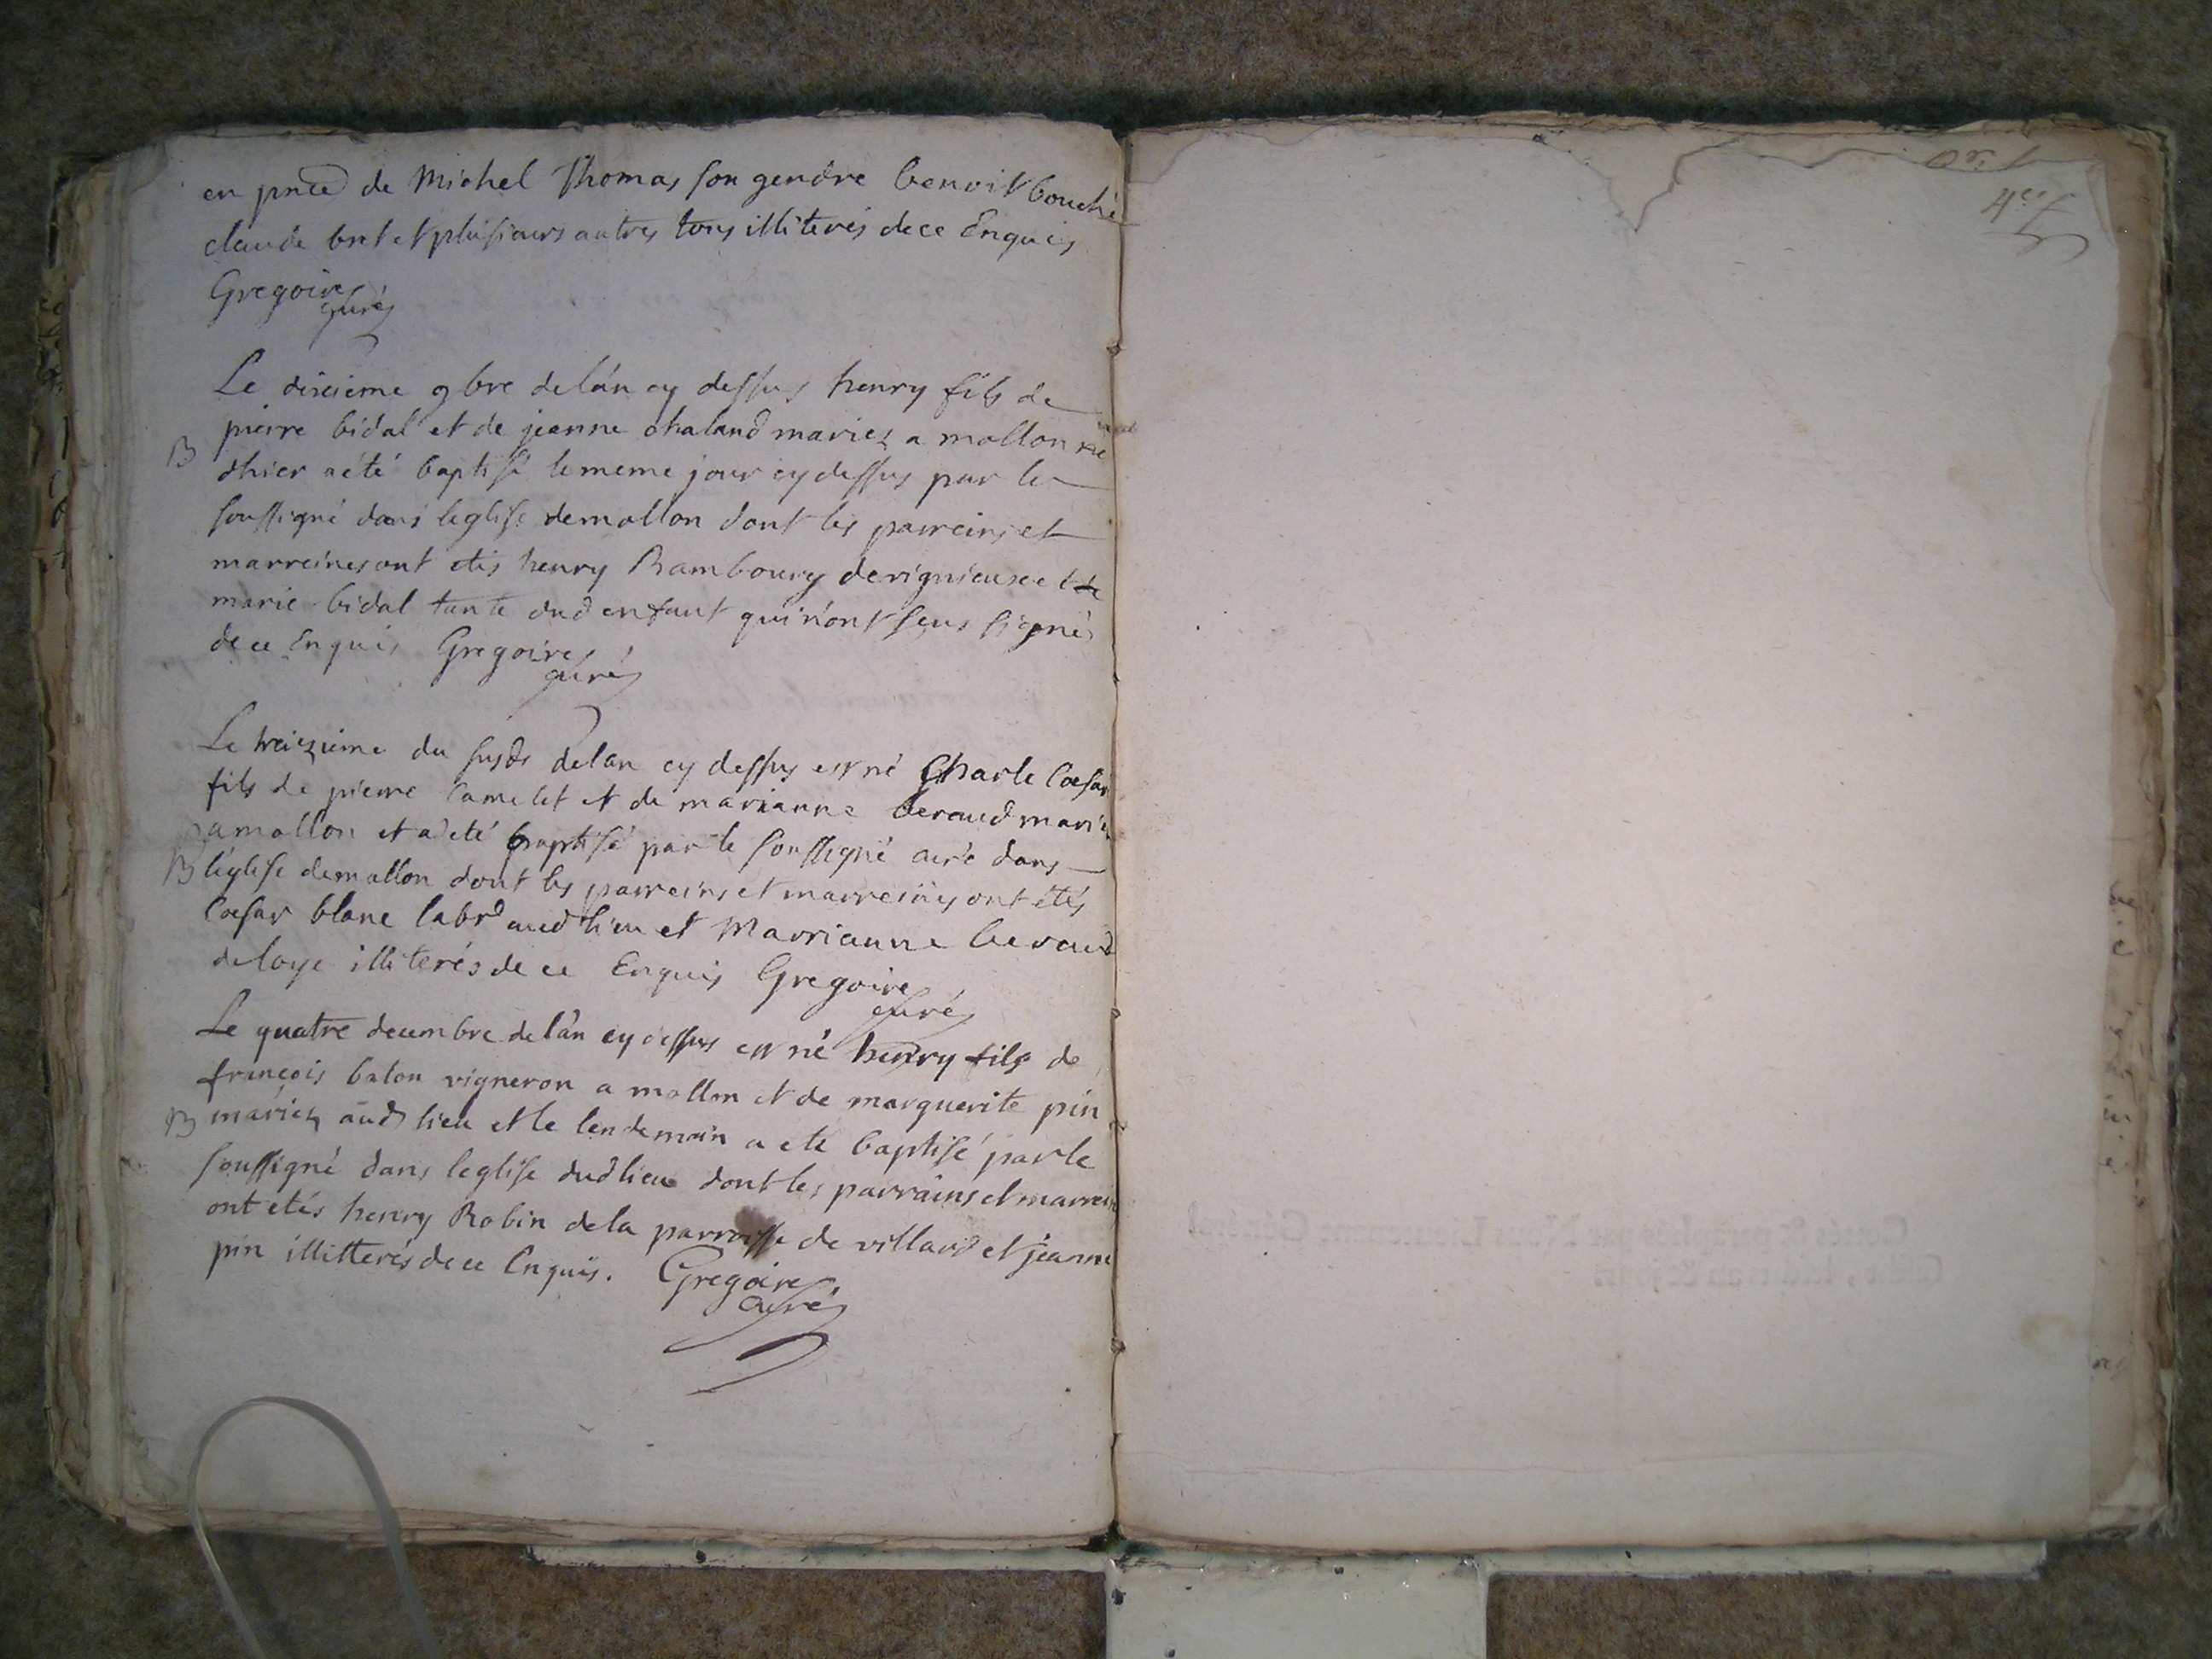 en pnce de Michel Thomas son gendre benoit bouché
claude bret et plusieurs autres tous illiterés de ce Enquis
Gregoire
curé
Le dixieme 9bre de lán cy dessus henry fils de
pierre bidal et de jeanne chaland mariez a mollon né
B
dhier a été baptisé le meme jour cy dessus par le
soussigné dans leglise de mollon dont les parreins et
marreines ont etés henry Rambourg de rignieux et de
marie bidal tante dud enfant qui n'ont sçus signé
de ce Enquis Gregoire
curé
Le treizieme du susds de lan cy dessus est né Charle Cæsar
fils de pierre Camelet et de marianne beraud mariez
a mollon et a eté baptisé par le soussigné curé dans
B léglise de mollon dont les parreins et marreines ont étés
Cæsar blanc labrd aud lieu et Marrianne beraud
de loye illiterés de ce Enquis Gregoire
curé
Le quatre decembre de lán cy dessus est né henry fils de
francois baton vigneron a mollon et de marguerite pin
B mariez aud lieu et le lendemain a eté baptisé par le
soussigné dans leglise dud lieu dont les parrains et marrein
ont etés henry Robin de la parroisse de villard et jeanne
pin illitterés de ce Enquis. Gregoire
curé